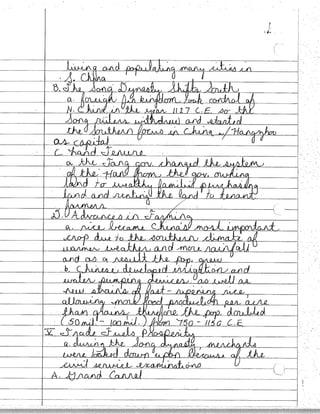 living and populating many cities in
S. China
B. The Song Dynasty Shifts South
a foreign Jin kingdom took control of
N. China in the year 1127 C.E. so the
Song rulers withdrew and started
the Southern focus in China w/ Hangzhou
as capital
C. Land Tenure
a. the Tang gov. changed the system
of the Han from the gov. owning
land to wealthy families purchasing
land and renting the land to tenant
farmers
D. Advances in Farming
a. rice became China's most important
crop due to the southern climate of
warmer weather and more rainfall
and as a result the pop. grew
b. Chinese developed irrigation and
water pumping devices as well as
new strains of fast-ripening rice,
allowing more food production per acre
than grains, therefore the pop. doubled
(50 mil - 100 mil.) from 750 - 1150 C.E
V. Trade Fuels Prosperity
a. during the Song dynasty, merchants
were looked down upon because of the
civil service examinations
A. Grand Cannel